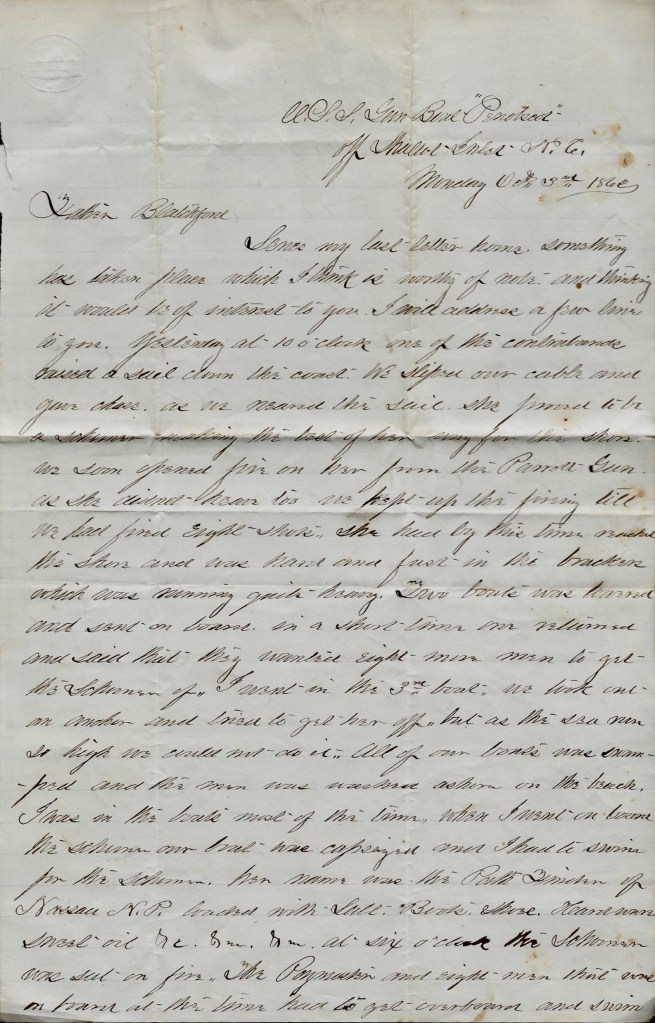 U.S.S. Gun Boat "Penobscot"
off Shallot Inlet N.C.
Monday Oct 3rd 1862
Father Blatchford
Sence my last letter home. something
has taken place which I think is worthy of note. and thinking
it would be of interest to you. I will address a few line
to you. Yesterday at 10 o'clock one of the contrabands
raised a sail down the coast. We sliped our cable and
gave chase. as we neard the sail. she proved to be
a schooner making the best of her way for the shore.
we soon opened fire on her from the Parrott Gun.
as she didnot heave too we kept up the firing till
we had fired eight shots,, she had by this time reached
the shore and was hard and fast in the brackers
which was running quite heavy. Two boats was lowered
and sent on board. in a short time one returned
and said that they wanted eight more men to get
the Schooner of,, I went in the 3rd boat. we took out
an anchor and tried to get her off,, but as the sea run
so high we could not do it,, All of our boats was swam-
-ped and the men was washed ashore on the beach.
I was in the boats most of the time,, when I went on board
the schooner our boat was capsized and I had to swim
for the schooner. her name was the Path Finder of
Nassau N.P. loaded with Salt. Boots. Shoe. Hard ware
sweet oil &c. &c. &c. at six o'clock the Schooner
was set on fire,, The Paymaster and eight men that was
on board at the time had to get overboard and swim